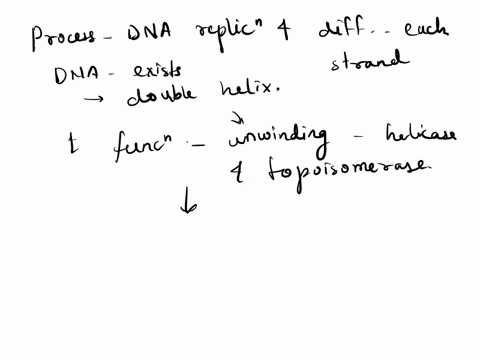 Process - DNA replicⁿ & diff.. each
strand
DNA - exists
→ double helix.
t funcⁿ - unwinding - helicase
& topoisomerase